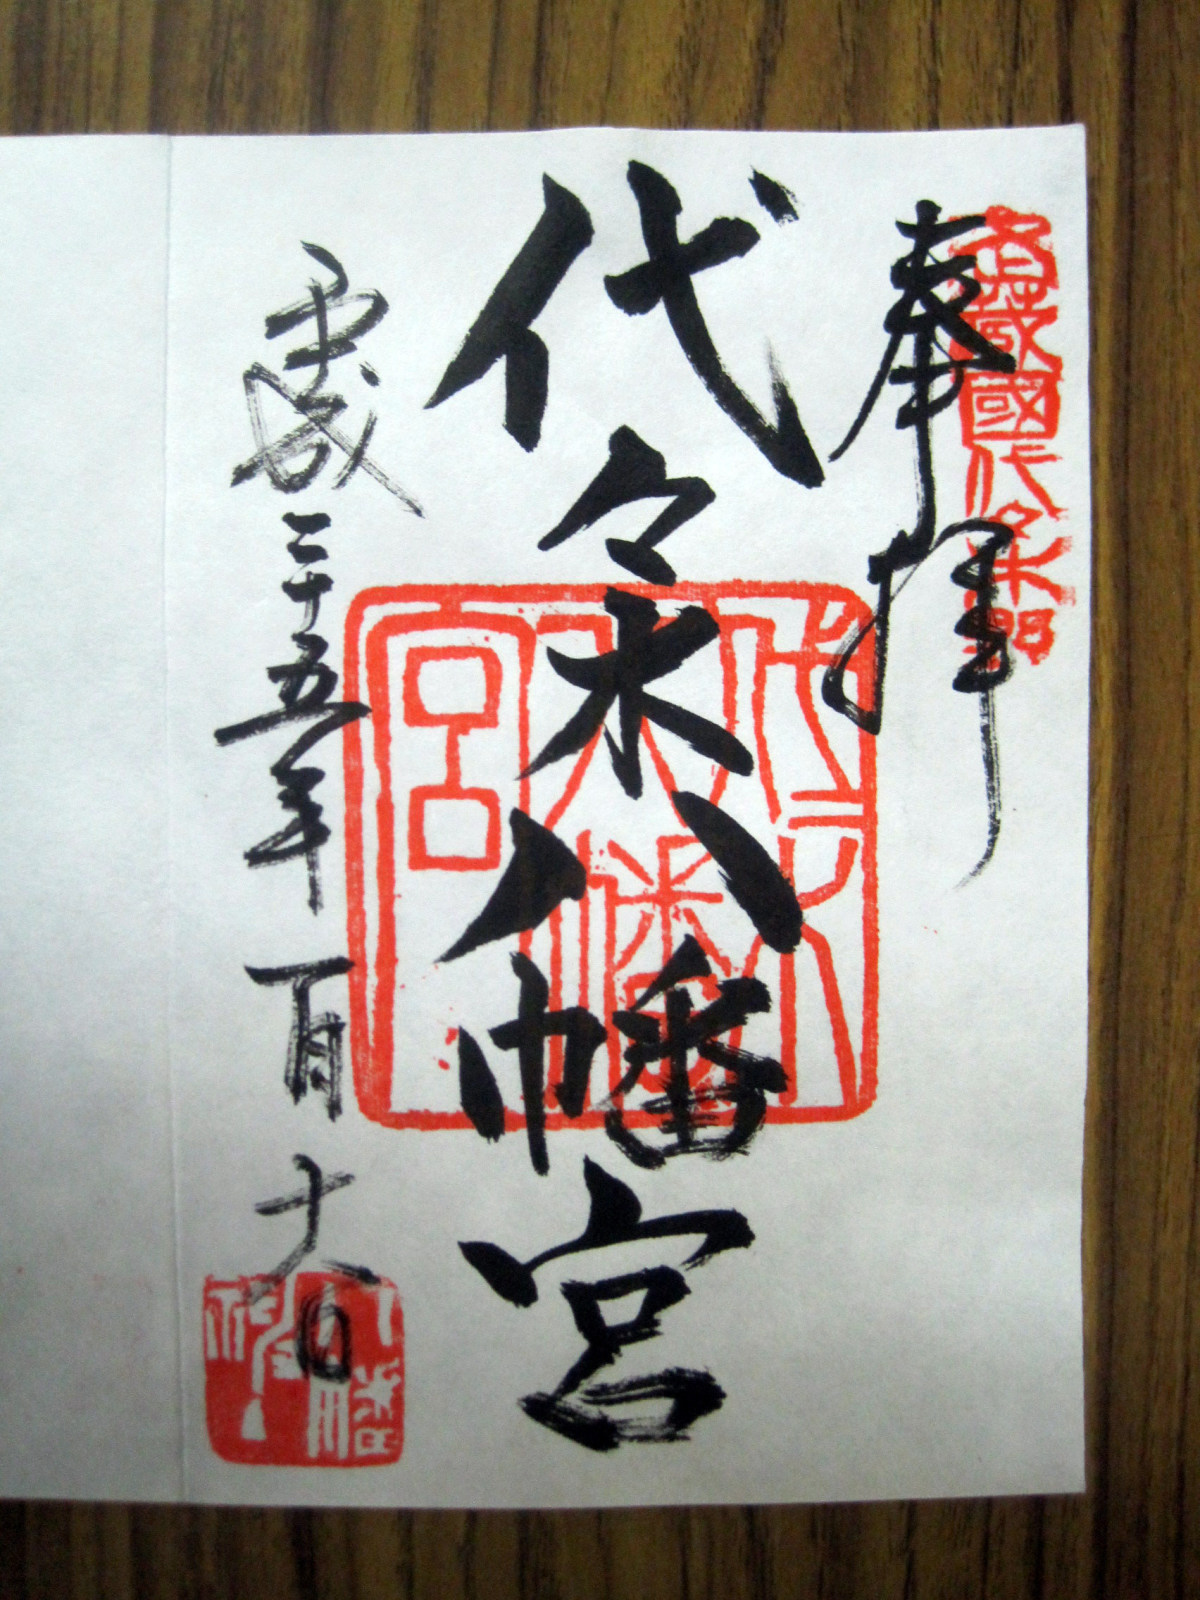 武蔵國代々木野
奉拝
代々木八幡宮
代々木八幡宮
平成二十五年一月十日